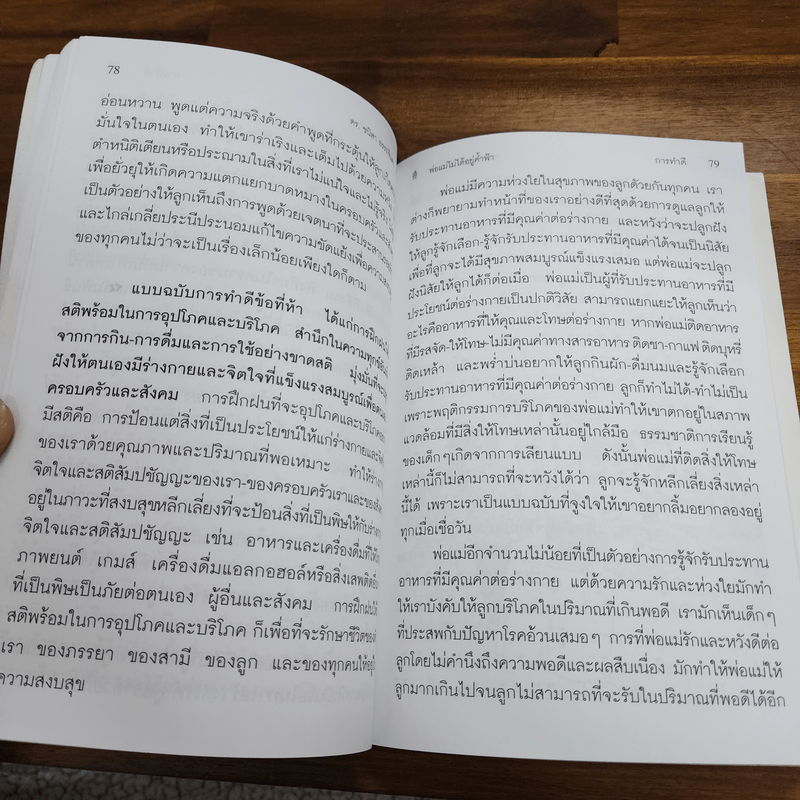 78
อ่อนหวาน พูดแต่ความจริงด้วยคำพูดที่กระตุ้นให้ลูก
มั่นใจในตนเอง ทำให้เขาร่าเริงและเต็มไปด้วยความ
ตำหนิติเตียนหรือประณามในสิ่งที่เราไม่แน่ใจและไม่รู้
เพื่อยั่วยุให้เกิดความแตกแยกบาดหมางในครอบครัวและ
เป็นตัวอย่างให้ลูกเห็นถึงการพูดด้วยเจตนาที่จะประสาน
และไกล่เกลี่ยประนีประนอมแก้ไขความขัดแย้งเพื่อความ
ของทุกคนไม่ว่าจะเป็นเรื่องเล็กน้อยเพียงใดก็ตาม
แบบฉบับการทำดีข้อที่ห้า ได้แก่การฝึกฝน
สติพร้อมในการอุปโภคและบริโภค สำนึกในความทุกข์
จากการกิน-การดื่มและการใช้อย่างขาดสติ มุ่งมั่นที่จะ
ฝังให้ตนเองมีร่างกายและจิตใจที่แข็งแรงสมบูรณ์เพื่อ
ครอบครัวและสังคม การฝึกฝนที่จะอุปโภคและบริโภค
มีสติคือ การป้อนแต่สิ่งที่เป็นประโยชน์ให้แก่ร่างกายและ
ของเราด้วยคุณภาพและปริมาณที่พอเหมาะ ทำให้ร่างกาย
จิตใจและสติสัมปชัญญะของเรา-ของครอบครัวเราและของ
อยู่ในภาวะที่สงบสุขหลีกเลี่ยงที่จะป้อนสิ่งที่เป็นพิษให้กับร่างกาย
จิตใจและสติสัมปชัญญะ เช่น อาหารและเครื่องดื่มที่ให้
ภาพยนต์ เกมส์ เครื่องดื่มแอลกอฮอล์หรือสิ่งเสพติดอื่น
ที่เป็นพิษเป็นภัยต่อตนเอง ผู้อื่นและสังคม การฝึกฝน
สติพร้อมในการอุปโภคและบริโภค ก็เพื่อที่จะรักษาชีวิตของ
เรา ของภรรยา ของสามี ของลูก และของทุกคนให้อยู่
ความสงบสุข
พ่อแม่ไม่ได้อยู่ค้ำฟ้า การทำดี 79
พ่อแม่มีความห่วงใยในสุขภาพของลูกด้วยกันทุกคน เรา
ต่างก็พยายามทำหน้าที่ของเราอย่างดีที่สุดด้วยการดูแลลูกให้
รับประทานอาหารที่มีคุณค่าต่อร่างกาย และหวังว่าจะปลูกฝัง
ให้ลูกรู้จักเลือก-รู้จักรับประทานอาหารที่มีคุณค่าได้จนเป็นนิสัย
เพื่อที่ลูกจะได้มีสุขภาพสมบูรณ์แข็งแรงเสมอ แต่พ่อแม่จะปลูก
ฝังนิสัยให้ลูกได้ก็ต่อเมื่อ พ่อแม่เป็นผู้ที่รับประทานอาหารที่มี
ประโยชน์ต่อร่างกายเป็นปกติวิสัย สามารถแยกแยะให้ลูกเห็นว่า
อะไรคืออาหารที่ให้คุณและโทษต่อร่างกาย หากพ่อแม่ติดอาหาร
ที่มีรสจัด-ให้โทษ-ไม่มีคุณค่าทางสารอาหาร ติดชา-กาแฟ ติดบุหรี่
ติดเหล้า และพร่ำบ่นอยากให้ลูกกินผัก-ดื่มนมและรู้จักเลือก
รับประทานอาหารที่มีคุณค่าต่อร่างกาย ลูกก็ทำไม่ได้-ทำไม่เป็น
เพราะพฤติกรรมการบริโภคของพ่อแม่ทำให้เขาตกอยู่ในสภาพ
แวดล้อมที่มีสิ่งให้โทษเหล่านั้นอยู่ใกล้มือ ธรรมชาติการเรียนรู้
ของเด็กๆเกิดจากการเลียนแบบ ดังนั้นพ่อแม่ที่ติดสิ่งให้โทษ
เหล่านี้ก็ไม่สามารถที่จะหวังได้ว่า ลูกจะรู้จักหลีกเลี่ยงสิ่งเหล่า
นี้ได้ เพราะเราเป็นแบบฉบับที่จูงใจให้เขาอยากลิ้มอยากลองอยู่
ทุกเมื่อเชื่อวัน
พ่อแม่อีกจำนวนไม่น้อยที่เป็นตัวอย่างการรู้จักรับประทาน
อาหารที่มีคุณค่าต่อร่างกาย แต่ด้วยความรักและห่วงใยมักทำ
ให้เราบังคับให้ลูกบริโภคในปริมาณที่เกินพอดี เรามักเห็นเด็กๆ
ที่ประสพกับปัญหาโรคอ้วนเสมอๆ การที่พ่อแม่รักและหวังดีต่อ
ลูกโดยไม่คำนึงถึงความพอดีและผลสืบเนื่อง มักทำให้พ่อแม่ให้
ลูกมากเกินไปจนลูกไม่สามารถที่จะรับในปริมาณที่พอดีได้อีก